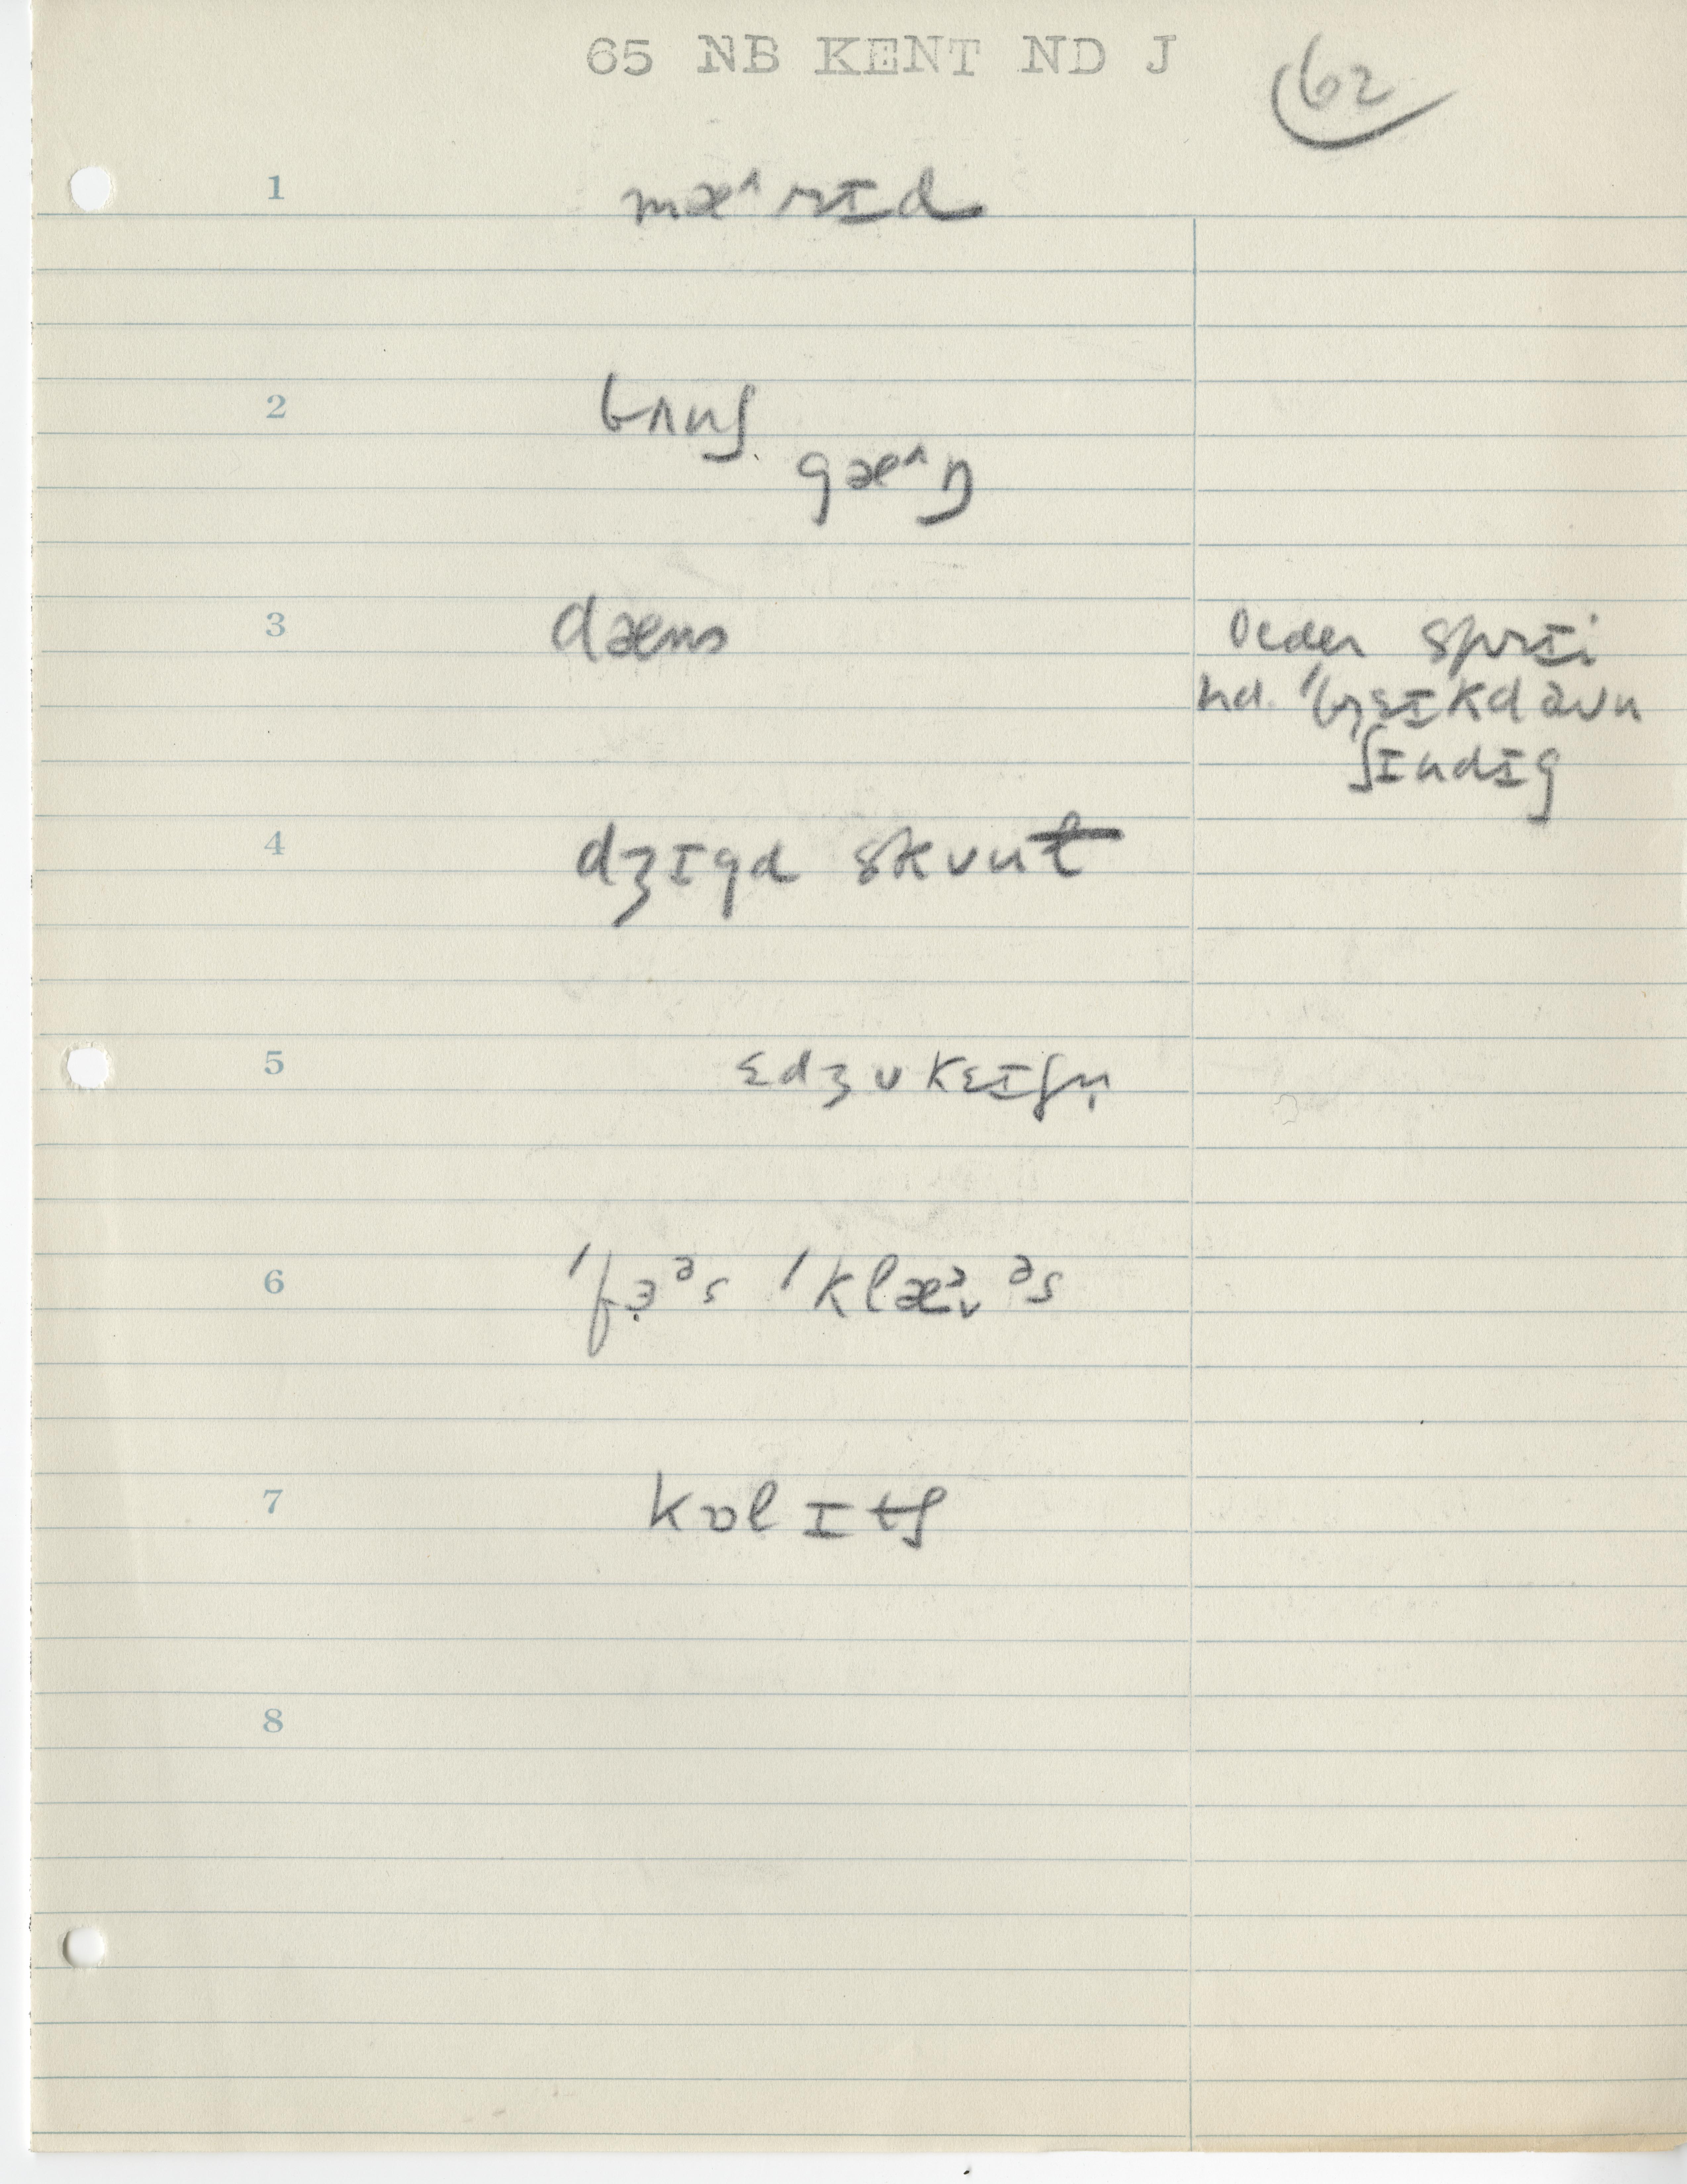 65 NB KENT ND J
62
1 mæ^rɪd
2 bʌnʃ
gæ^ŋ
3 dæns
ɪ
hd. 'brɛɪkdaʊn
ʃɪndɪg
4 dʒɪgd skunt
5 ɛdʒukɛɪʃn̩
6 'fɜ̣ᵊs 'klæᵊ˯ᵊs
7 kɒlɪtʃ
8